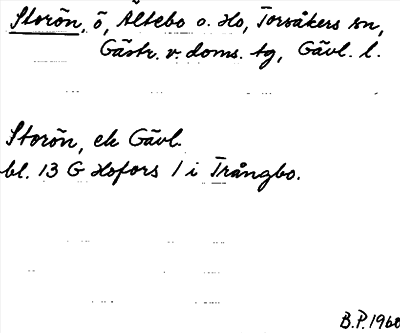 Storön, ö, Ältebo o. Ho, Torsåkers sn,
Gästr. v. doms. tg, Gävl. l.
Storön, ek Gävl.
bl. 13 G Hofors 1 i Trångbo.
B.P. 1960